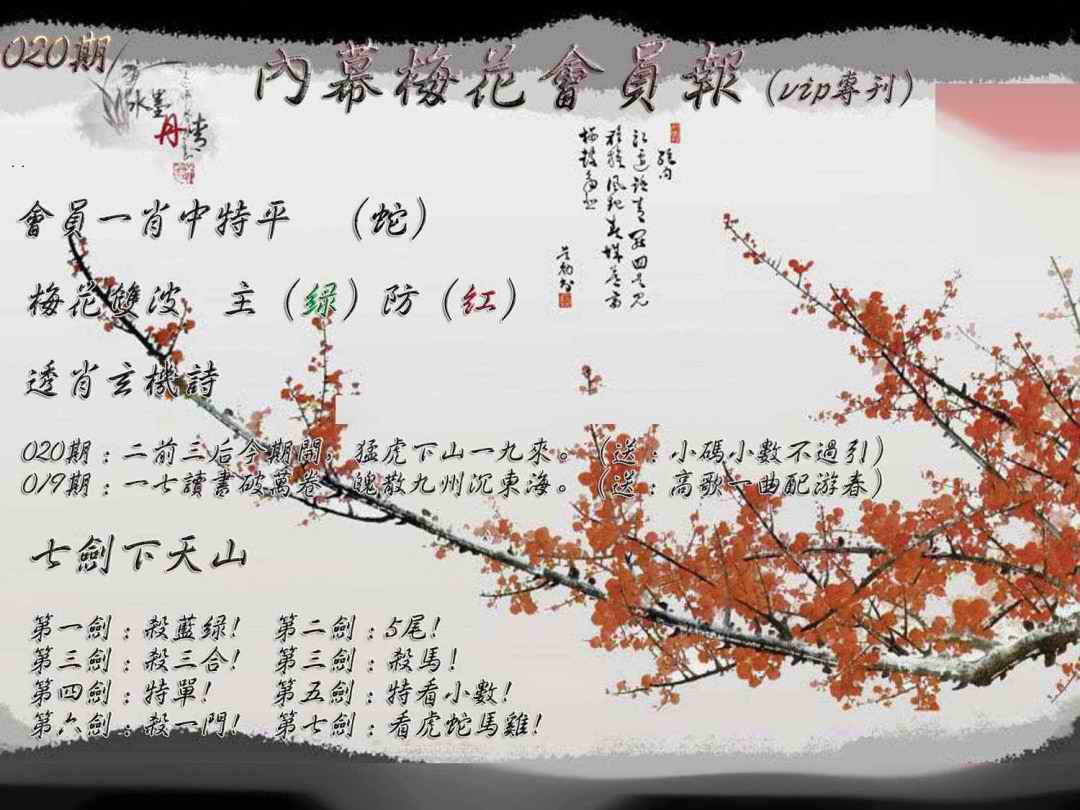 020期
內幕梅花會員報（vip專刊）
水墨
丹青
會員一肖中特平　（蛇）
梅花雙波　主（綠）防（紅）
透肖玄機詩
020期：二前三后今期開，猛虎下山一九來。（送：小碼小數不過引）
019期：一七讀書破萬卷　魄散九州沉東海。（送：高歌一曲配游春）
七劍下天山
第一劍：殺藍綠！　第二劍：5尾！
第三劍：殺三合！　第三劍：殺馬！
第四劍：特單！　第五劍：特看小數！
第六劍：殺一門！　第七劍：看虎蛇馬雞！